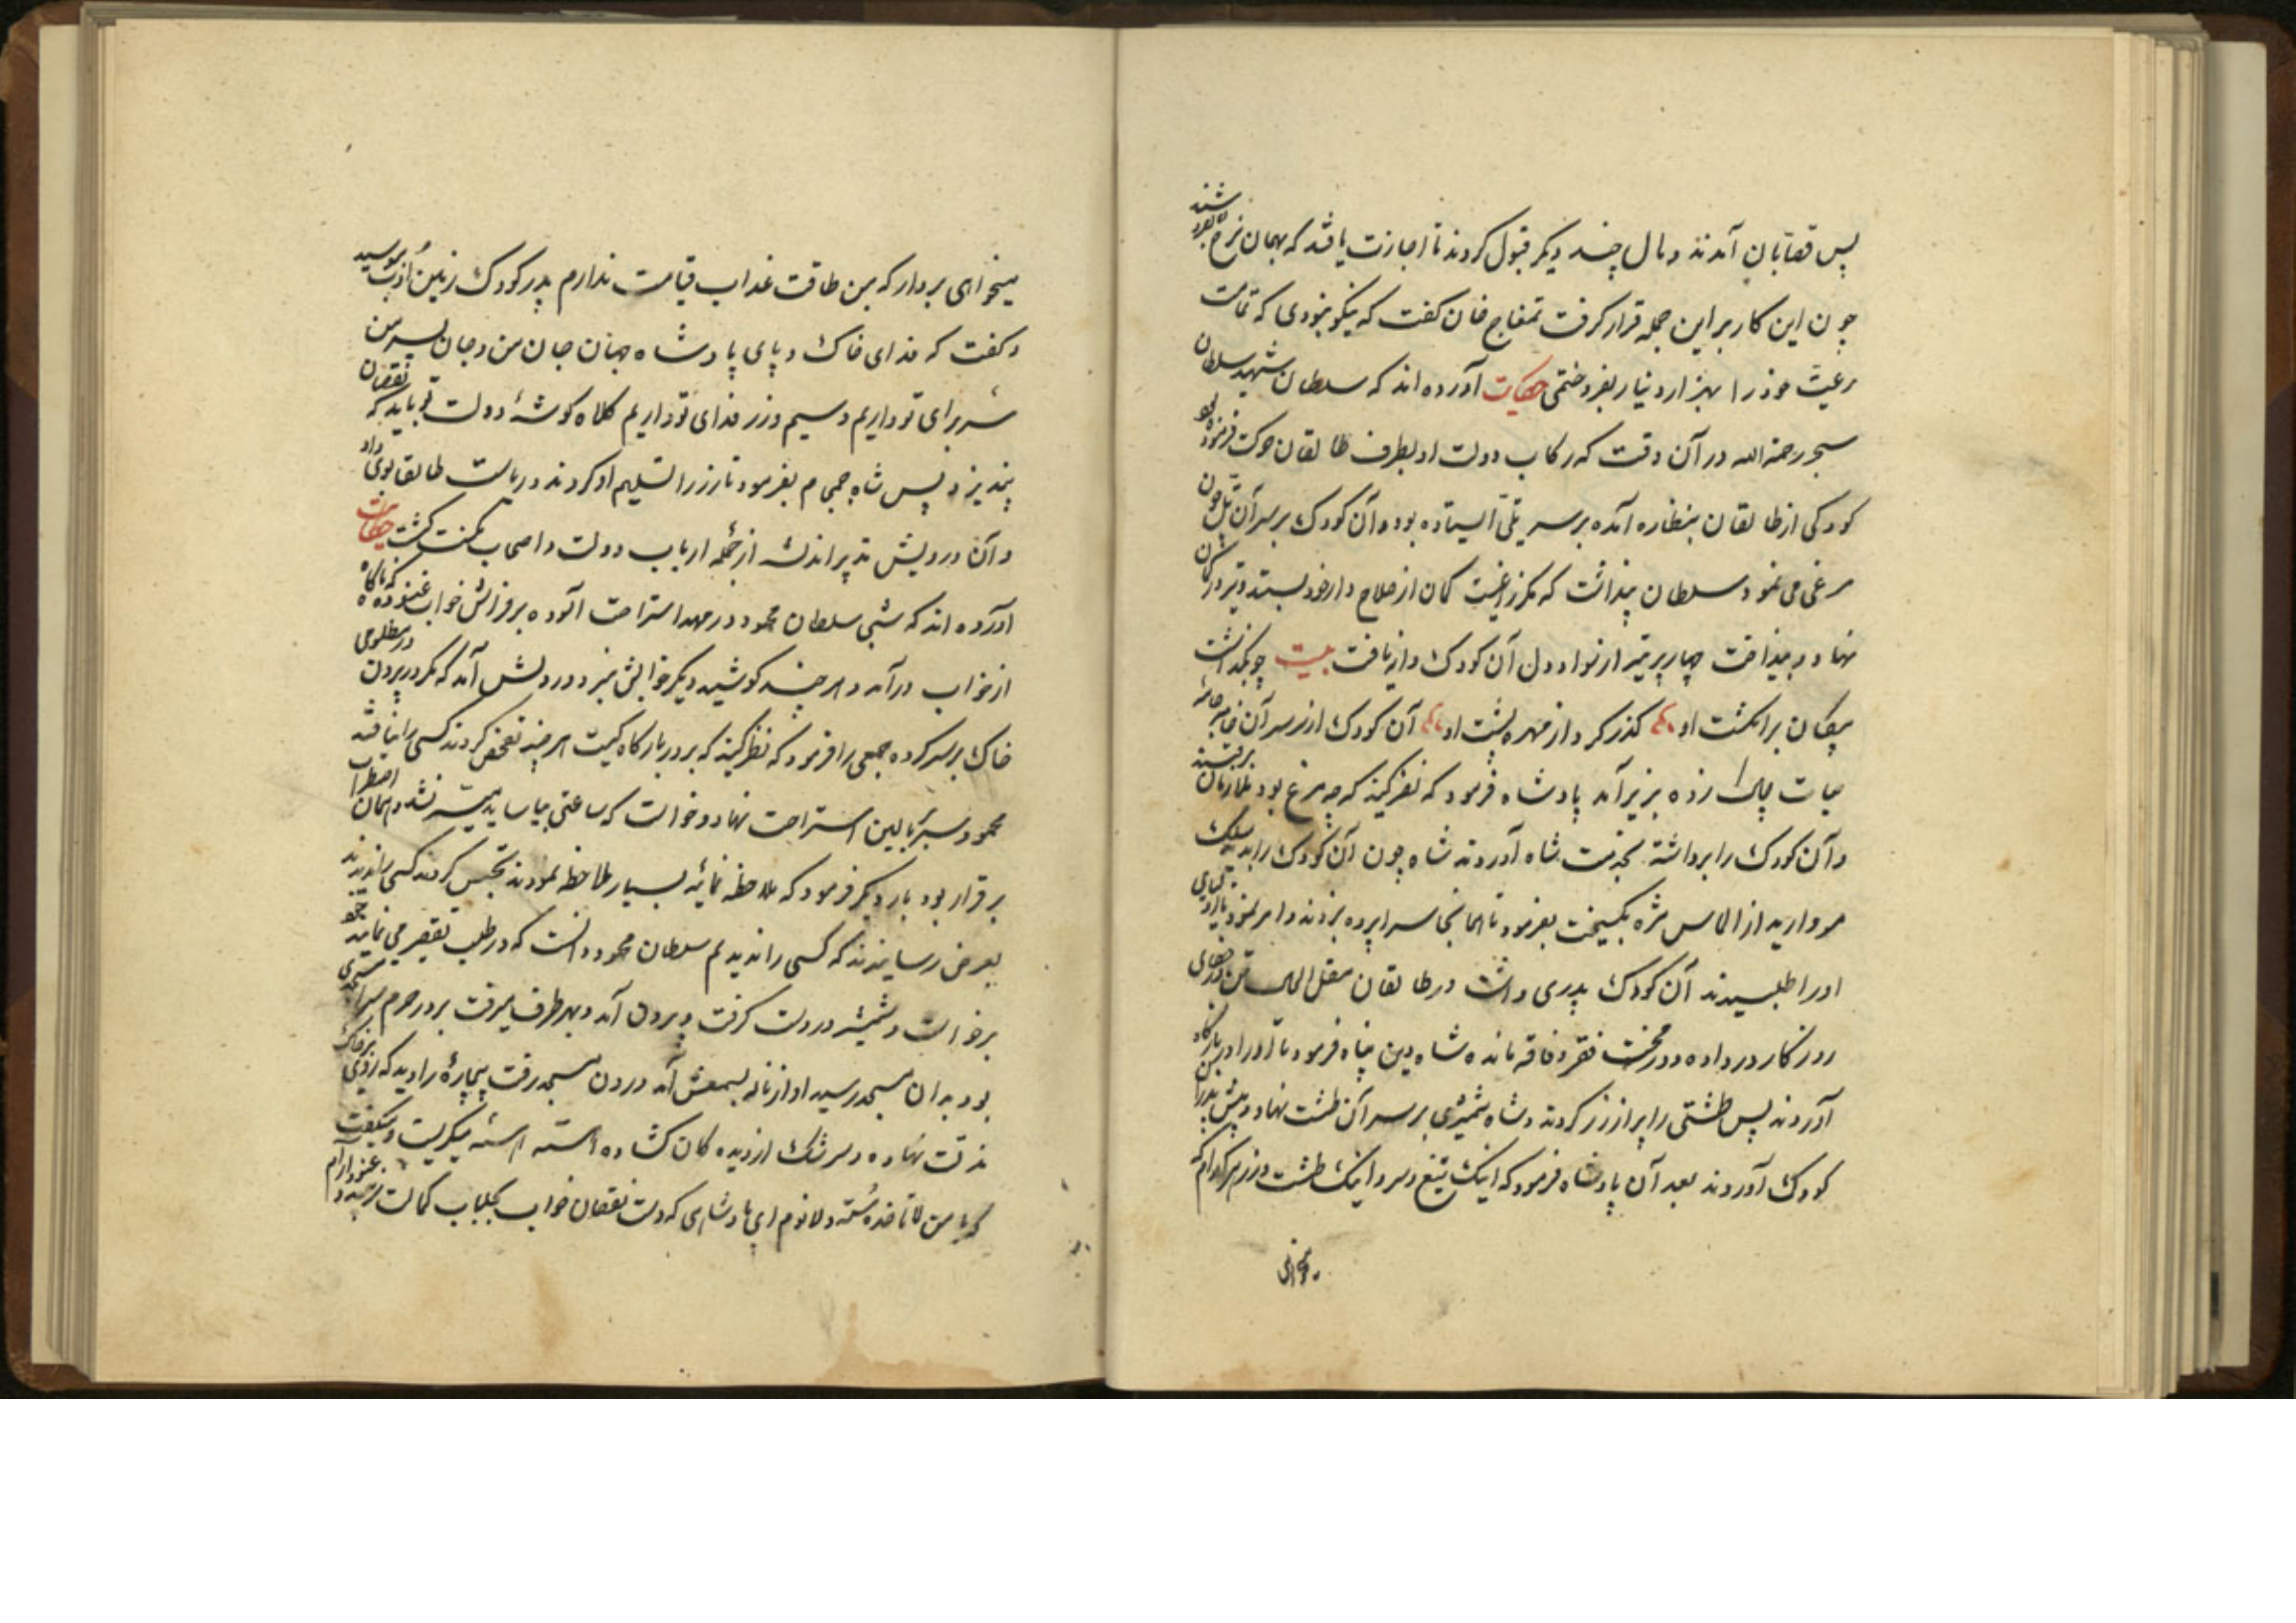 پس قصابان آمدند و مال چند دیگر قبول کردند تا اجازت یافتند که بهمان نرخ
چون این کار بر این جمله قرار گرفت تمغاج خان کفت که نیکو بنودی که تمامت
رعیت خود را بهزار دینار بفروختمی حکایت آورده اند که سلطان شهید سلطان
سنجر رحمة الله در آن وقت که رکاب دولت او بطرف طالقان حرکت فرمود
کودکی از طالقان بنظاره آمده بر سر تلی ایستاده بود و آن کودک بر سر آن تل چون
مرغی می نمود سلطان پنداشت که مکر زاغیست کمان از سلاح دار خود بستد و تیر در کمان
نهاد و بینداخت چهار پر تیر از نوا و دل آن کودک دانه یافت بیت چو بگذاشت
پیکان بر انکشت او گذر کرد از مهره پشت او آن کودک از سر آن
حیات زده بزیر آمد پادشاه فرمود که نظر کنید که چه مرغ بود ملازمان برفتند
و آن کودک را برداشته بخدمت شاه آوردند شاه چون آن کودک را بدید سلک
مروارید از الماس مژه بکسیخت بفرمود تا همانجا سراپرده بزدند و امر نمود تا
او را طلبیدند آن کودک پدری داشت در طالقان مقل الحال
روزگار درد داده و در محنت فقر و فاقه مانده شاه دین پناه فرمود تا او را در بارگاه
آوردند پس طشتی را پر از زر کردند و شاه شمشیری بر سر آن طشت نهاد و پیش پدر آن
کودک آوردند بعد آن پادشاه فرمود که اینک تیغ و سر و اینک طشت و زر هر کدام که
میخواهی
میخواهی بردار که من طاقت عذاب قیامت ندارم پدر کودک زمین ادب بوسید
و کفت که فدای خاک و پای پادشاه جهان جان من و جان پسر من
سر برای تو داریم و سیم و زر فدای تو داریم کلاه کوشهٔ دولت تو باید که نقصان
نپذیرد پس شاه جمجاه بفرمود تا زر را تسلیم او کردند و ریاست طالقان بوی داد
و آن درویش تدبیر اندیشه از جمله ارباب دولت و اصحاب مکنت کشت حکایت
آورده اند که شبی سلطان محمود در مهد استراحت آلوده بر فراش خواب غنوده که ناگاه
از خواب درآمد و هر چند کوشید دیگر خوابش نبرد و در دلش آمد که مکر در بیرون مظلومی
خاک بر سر کرده جمعی را فرمود که نظر کنید که بر در بارگاه کیست هر چند تفحص کردند کسی را نیافتند
محمود سر ببالین استراحت نهاد و خواست که ساعتی بیاساید میسر نشد و همان اضطراب
برقرار بود بار دیگر فرمود که ملاحظه نمائید بسیار ملاحظه نمودند تجسس کردند کسی را ندیدند
بعرض رسانیدند که کسی را ندیدیم سلطان محمود دانست که در طلب تقصیر می نمایند خود
برخواست و شمشیر در دست گرفت و بیرون آمد و بهر طرف میرفت بر در حرم سرا مسجدی
بود بدان مسجد رسید اواز ناله بسمعش آمد درون مسجد رفت بیچارهٔ را دید که روی بر خاک
مذلت نهاده و سرشک از دیده کان کشاده آهسته آهسته میگریست و میگفت
که یا من لا تاخذه سنة و لا نوم ای پادشاهی که دست نقصان خواب بجلباب کمالت نرسد و